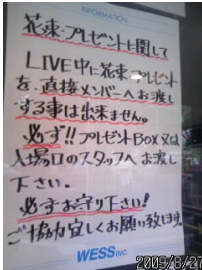 INFORMATION
花束・プレゼントに関して
LIVE中に花束・プレゼント
を直接メンバーへお渡し
する事は出来ません。
必ず!!プレゼントBOX又は
入場口のスタッフへお渡し
下さい。
必ずお守り下さい!
ご協力宜しくお願い致します。
WESS INC.
2009/8/27